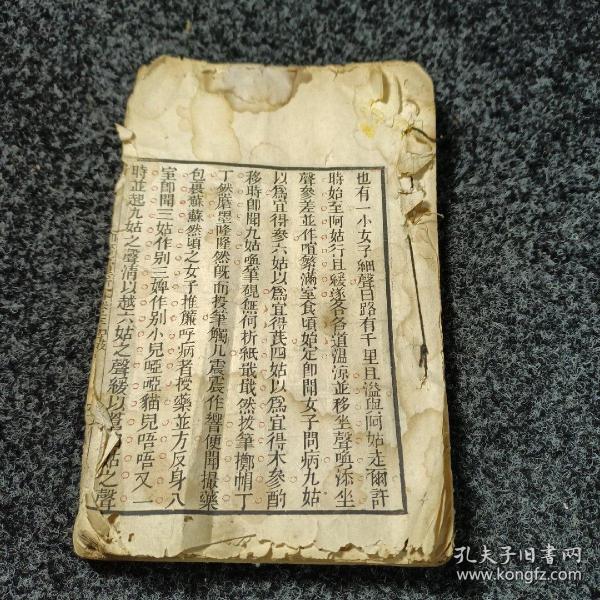 也有一小女子細聲曰路有千里且溢與阿姑走爾許
時始至阿姑行且緩遂各各道溫涼並移坐聲喚添坐
聲參差並作喧繁滿室食頃始定即聞女子問病九姑
以為宜得參六姑以為宜得芪四姑以為宜得朮參酌
移時即聞九姑喚筆硯無何折紙戢戢然拔筆擲帽丁
丁然磨墨隆隆然既而投筆觸几震震作響便聞撮藥
包裹蘇蘇然頃之女子推簾呼病者授藥並方反身入
室即聞三姑作別三婢作別小兒啞啞貓兒唔唔又一
時並起九姑之聲清以越六姑之聲緩以蒼四姑之聲
孔夫子旧書网
www.kongfz.com